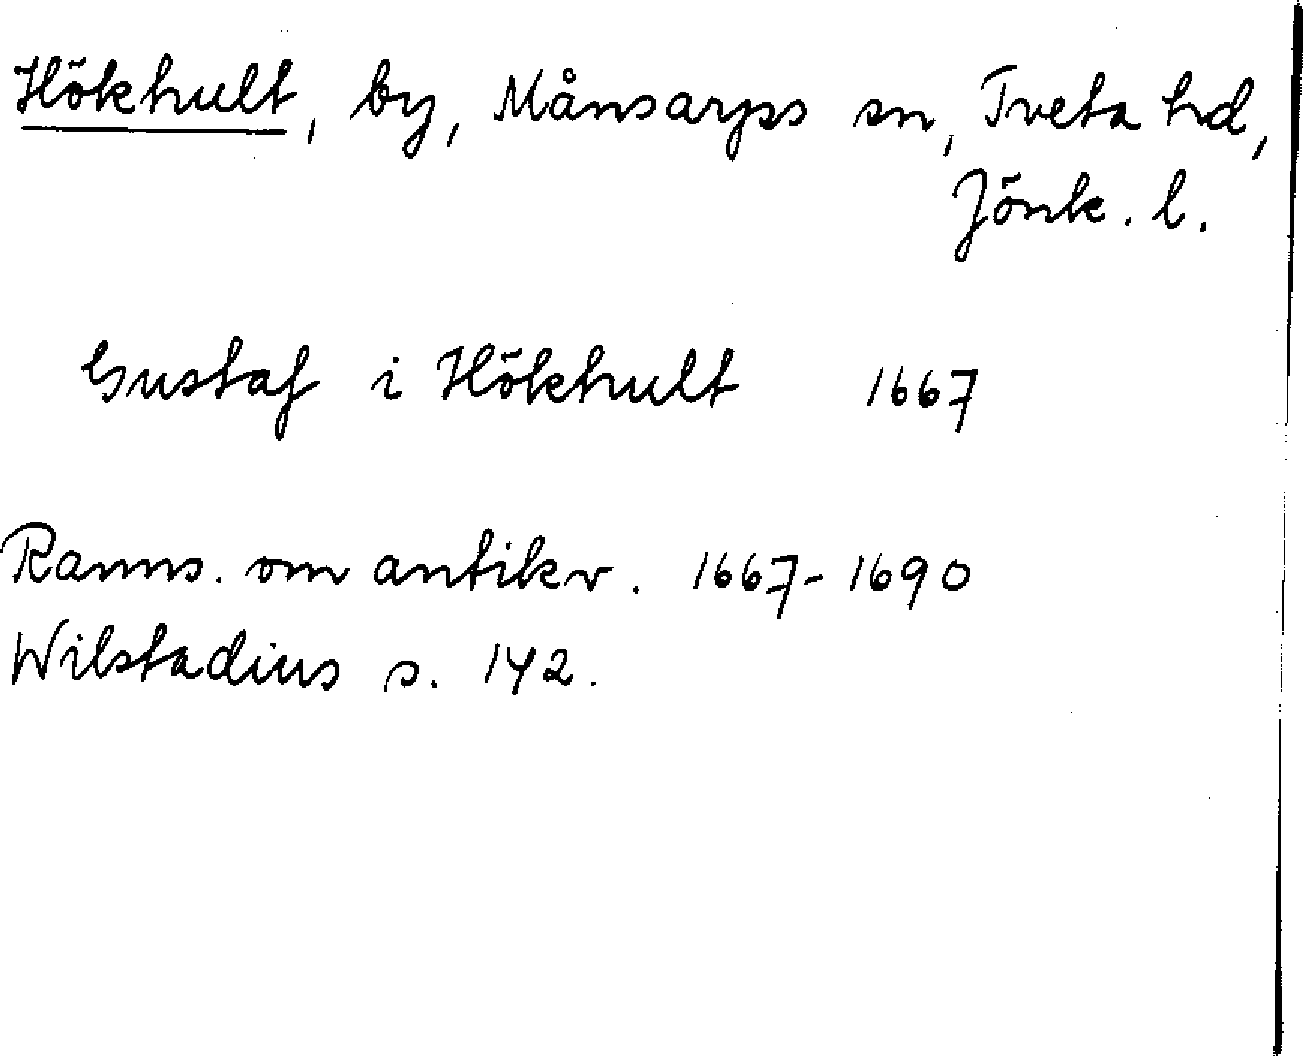 Hökhult, by, Månsarps sn, Tveta hd,
Jönk. l.
Gustaf i Hökhult 1667
Ranns. om antikv. 1667-1690
Wilstadius s. 142.